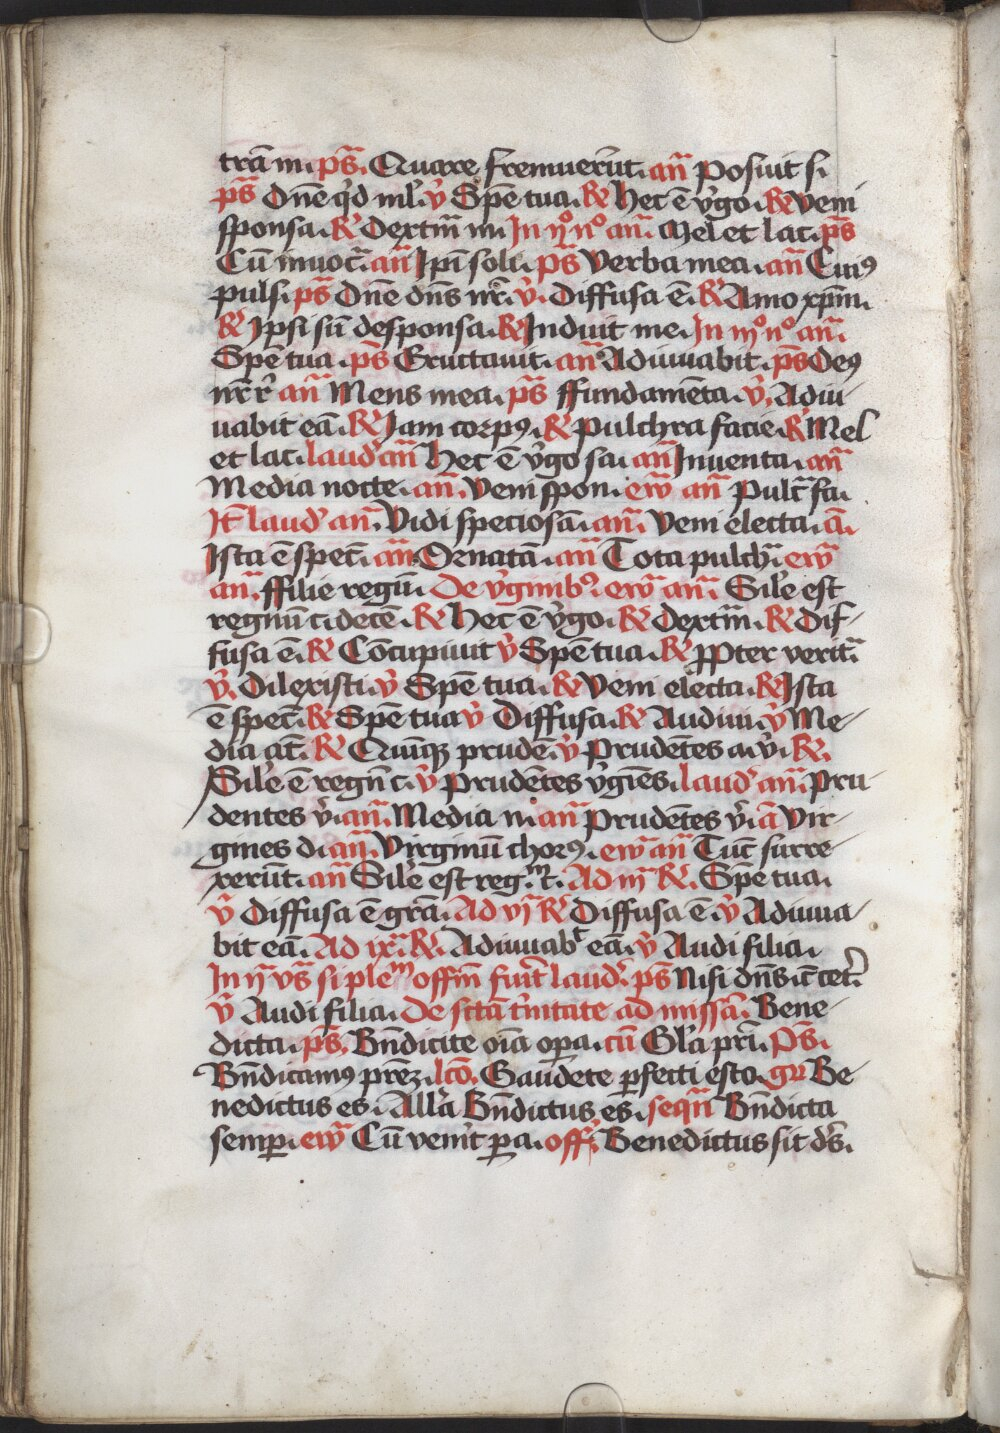 trā m. ps̄. Quare fremuer̄ūt. an̄ Posuit si
ps̄ Dn̄e q̇d ml̓. v̄ Spē tua. R̓ hec ē v̓go. R̓ Veni
sponsa. R̓ Dextrā m. In ijº nº an̄. Mel et lac. ps̄
Cū īnuoc̄. an̄ Ip̄i soli. ps̄ Verba mea. an̄ Cuiꝰ
puls. ps̄ Dn̄e dn̄s nr̄. v̄. Diffusa ē. R̓ Amo xp̄m.
R̓ Ipsi sū desponsa. R̓ Induit me. In iijº nº an̄.
Spē tua. ps̄ Eructauit. an̄ Adiuuabit. ps̄ Deꝰ
nr̄ r̓ an̄ Mens mea. ps̄ ffundamēta. v̄. Adiu-
uabit eā. R̓ Iam corpꝰ. R̓ Pulchra facie. R̓ Mel
et lac. laud̓ an̄ hec ē v̓go sa. an̄ Inuenta. an̄
Media nocte. an̄. Veni spon. ew̄ an̄ Pulc̄ fa.
It̄ laud̓ an̄. Vidi speciosā. an̄. Veni electa. a̓.
Ista ē spec̄. an̄ Ornatā. an̄ Tota pulch̓. ew̄
an̄. ffilie regū. De v̓ginibꝰ. ew̄ an̄. Sil̓e est
regnū c. decē. R̓ hec ē v̓go. R̓ Dextrā. R̓ Dif-
fusa ē. R̓ Cōcupiuit v̄ Spē tua. R̓ Ꝓpter verit̄.
v̄. Dilexisti. v̄ Spē tua. R̓ Veni electa. R̓ Ista
ē spec̄. R̓ Spē tua v̄ Diffusa. R̓ Audiui. v̄ Me-
dia āt. R̓ Quinqꝫ prudē. v̄ Prudētes a. v̄. R̓.
Sil̓e ē regn̄ c. v̄ Prudētes v̓gīes. laud̓ an̄. Pru-
dentes v̓. an̄. Media n. an̄ Prudētes v̓. a̓ Vir-
gines d. an̄. Virginū chorꝰ. ew̄ an̄ Tūc surre-
xerūt. an̄ Sil̓e est reg.m̄ c̄. Ad iij̄ R̓. Spē tua.
v̄ Diffusa ē grā. Ad vj̄ R̓ Diffusa ē. v̄ Adiuua-
bit eā. Ad ix̄. R̓. Adiuuabt̄ eā. v̄ Audi filia.
In ij̄ vs̄ si plem̄ offm̄ fūit laud̓. ps̄ Nisi dn̄s. c̄ cet̓.
v̄ Audi filia. De sctā t̓nitate ad missā. Bene-
dicta. ps̄. Bn̄dicite oīa oꝑa. cū Gl̓a pr̄i. Ps̄.
Bn̄dicamꝰ prēꝫ. lcō. Gaudete ꝑfecti esto. gr̄ Be-
nedictus es. All̓a Bn̄dictus es. seqn̄ Bn̄dicta
semꝑ. ew̄ Cū ven̓it ꝑa. off̓. Benedictus sit ds̄.